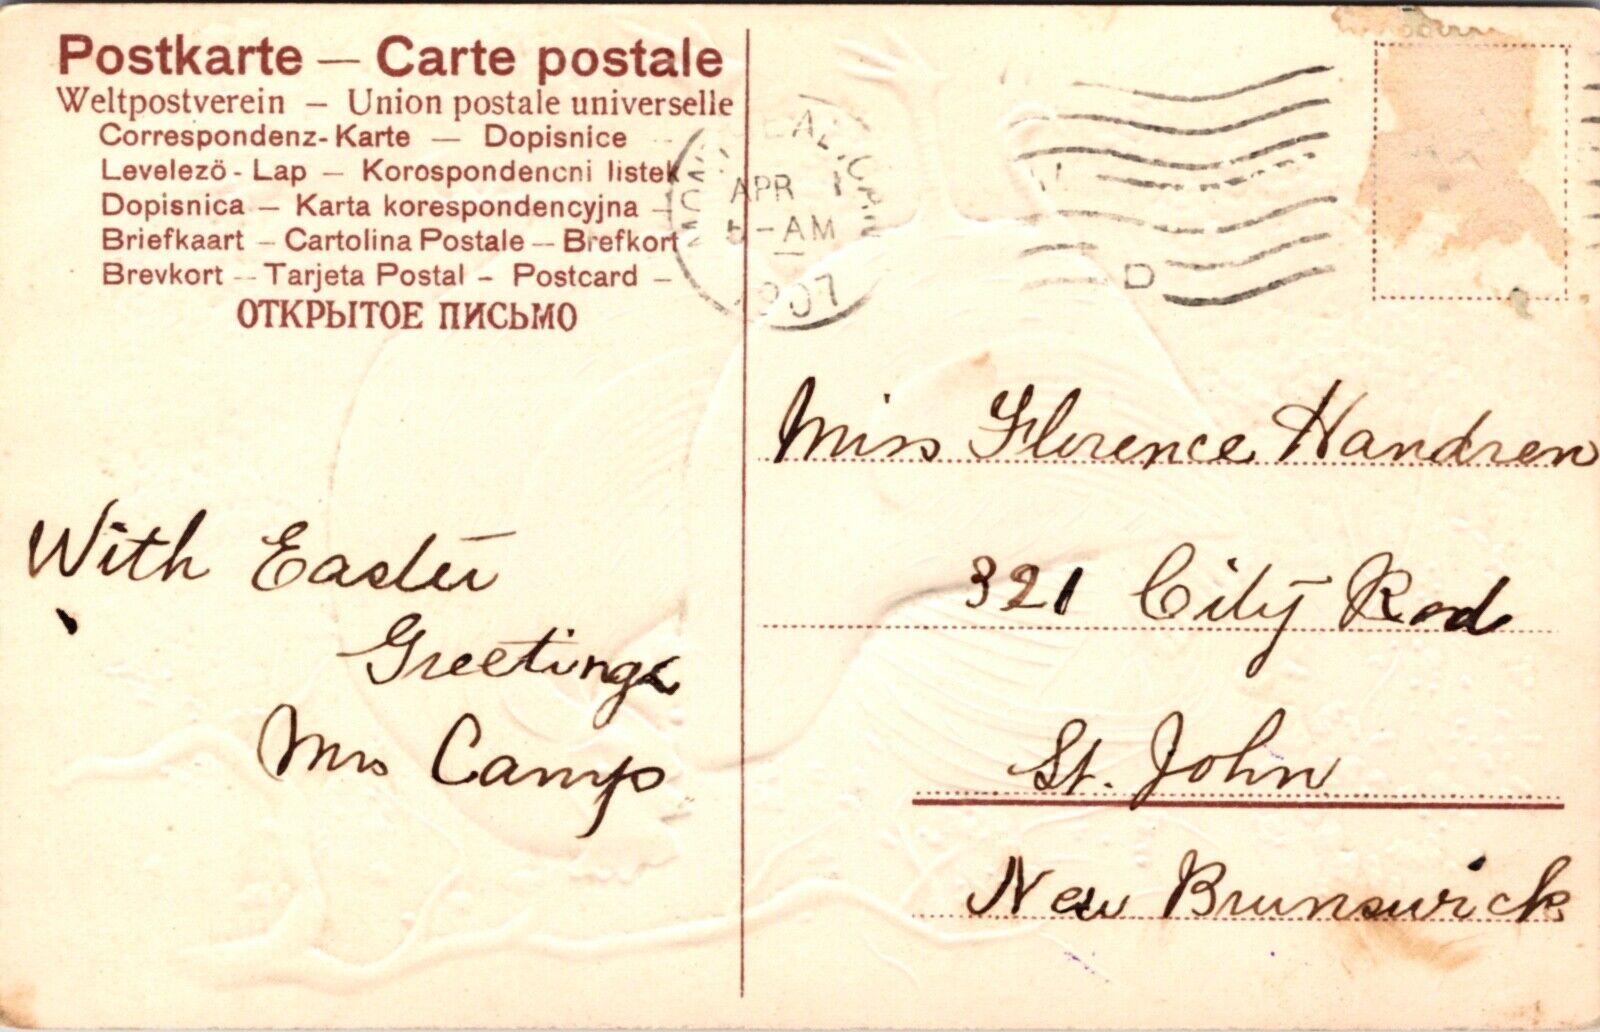 Postkarte — Carte postale
Weltpostverein — Union postale universelle
Correspondenz-Karte — Dopisnice
Levelezö-Lap — Korospondencni listek
Dopisnica — Karta korespondencyjna —
Briefkaart — Cartolina Postale — Brefkort
Brevkort — Tarjeta Postal — Postcard —
ОТКРЫТОЕ ПИСЬМО
APR 1
5-AM
1907
D
With Easter
Greetings
Mrs Camp
Miss Florence Handren
321 City Rod
St. John
New Brunswick